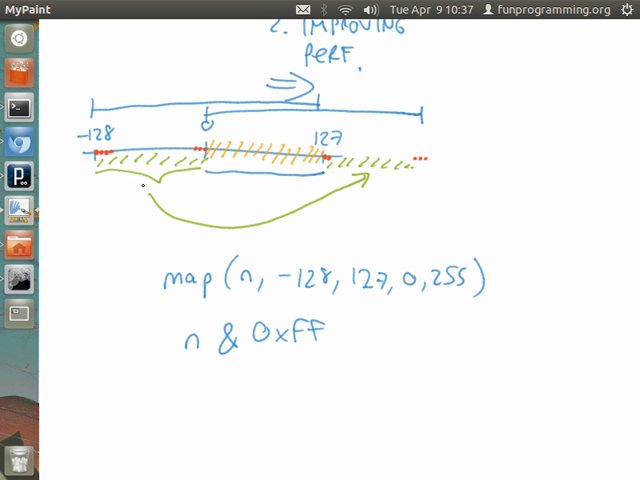 MyPaint
Tue Apr 9 10:37 funprogramming.org
2. IMPROVING
PERF.
0
-128
127
map (n, -128, 127, 0, 255)
n & 0xFF